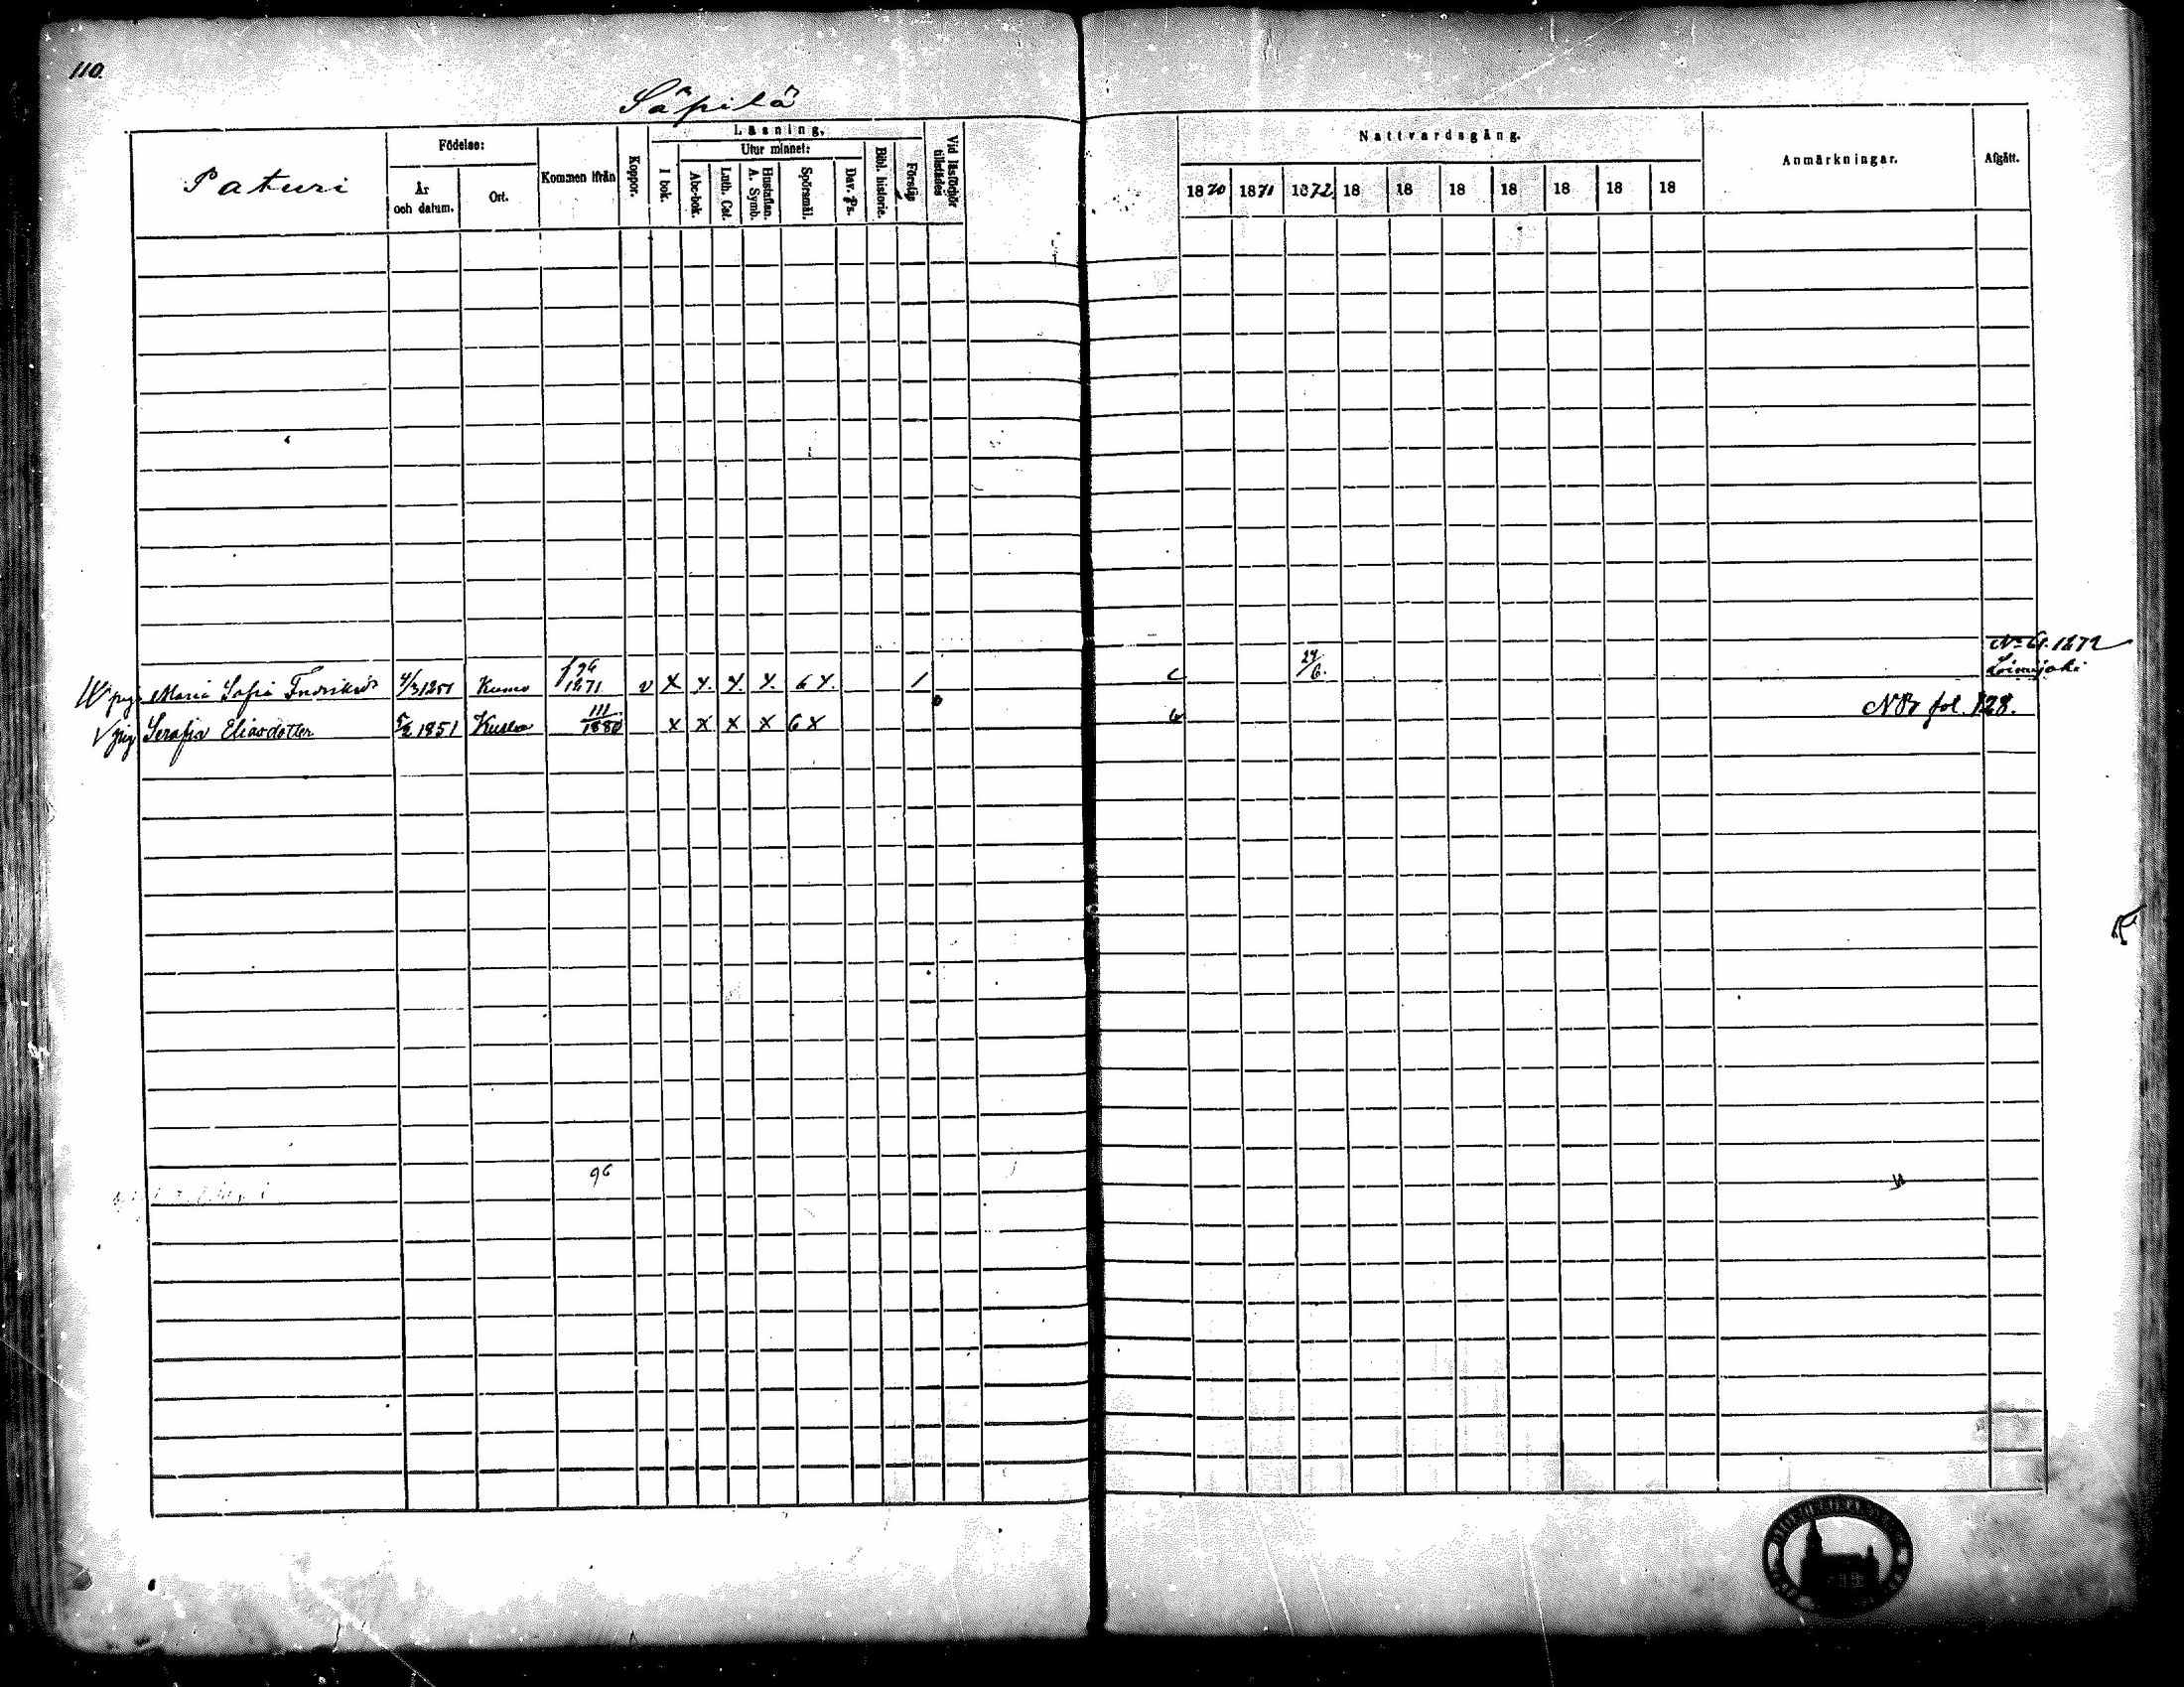 110.
Säpilä
Paturi
Födelse:
År och datum.
Ort.
Kommen ifrån
Koppor.
Läsning.
I bok.
Utur minnet:
Abc-bok.
Luth. Cat.
Hustaflan. A. Symb.
Spörsmål.
Dav. Ps.
Bibl. historie.
Förstår
Vid läsförhör tillstädes
Nattvardsgång.
1870 1871 1872 18 18 18 18 18 18 18
Anmärkningar.
Afgått.
No 61. 1872
pig. Maria Sofia Fredriksdr 4/3 1851 Kumo 1871 v X X. X. X. 6 X. 1 C 24/6.
pig Serafia Eliasdotter 1851 111/1880 X X X X 6 X
NB fol. 128.
96